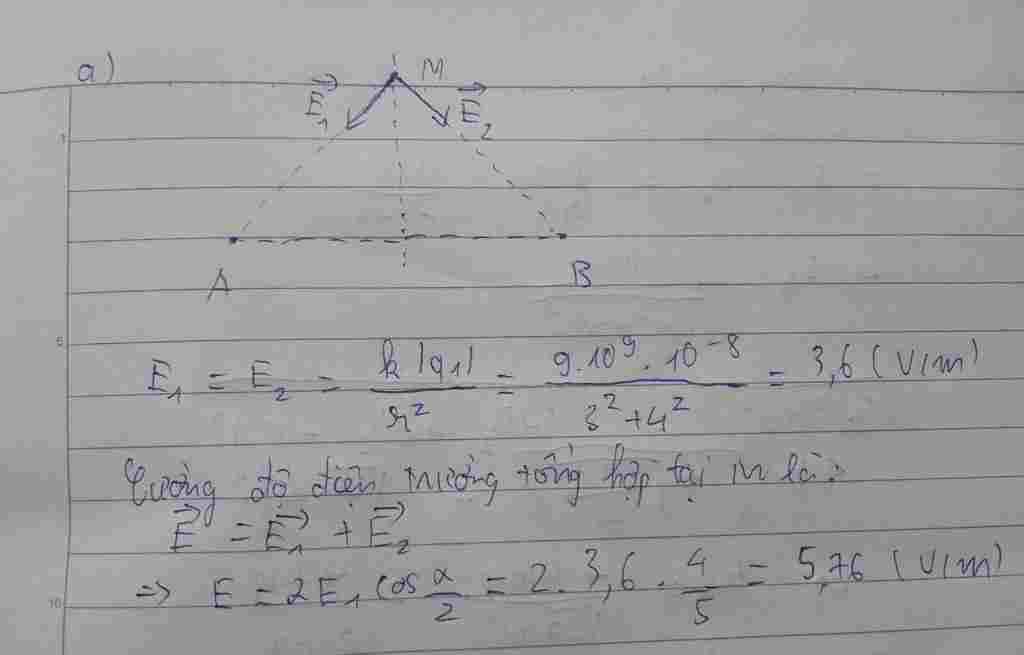 a)
M
E₁
E₂
A
B
E₁ = E₂ = k|q₁|/r² = 9.10⁹.10⁻⁸/3²+4² = 3,6 (V/m)
Cường độ điện trường tổng hợp tại M là:
E = E₁ + E₂
=> E = 2E₁ cos α/2 = 2.3,6.4/5 = 5,76 (V/m)
1
5
10